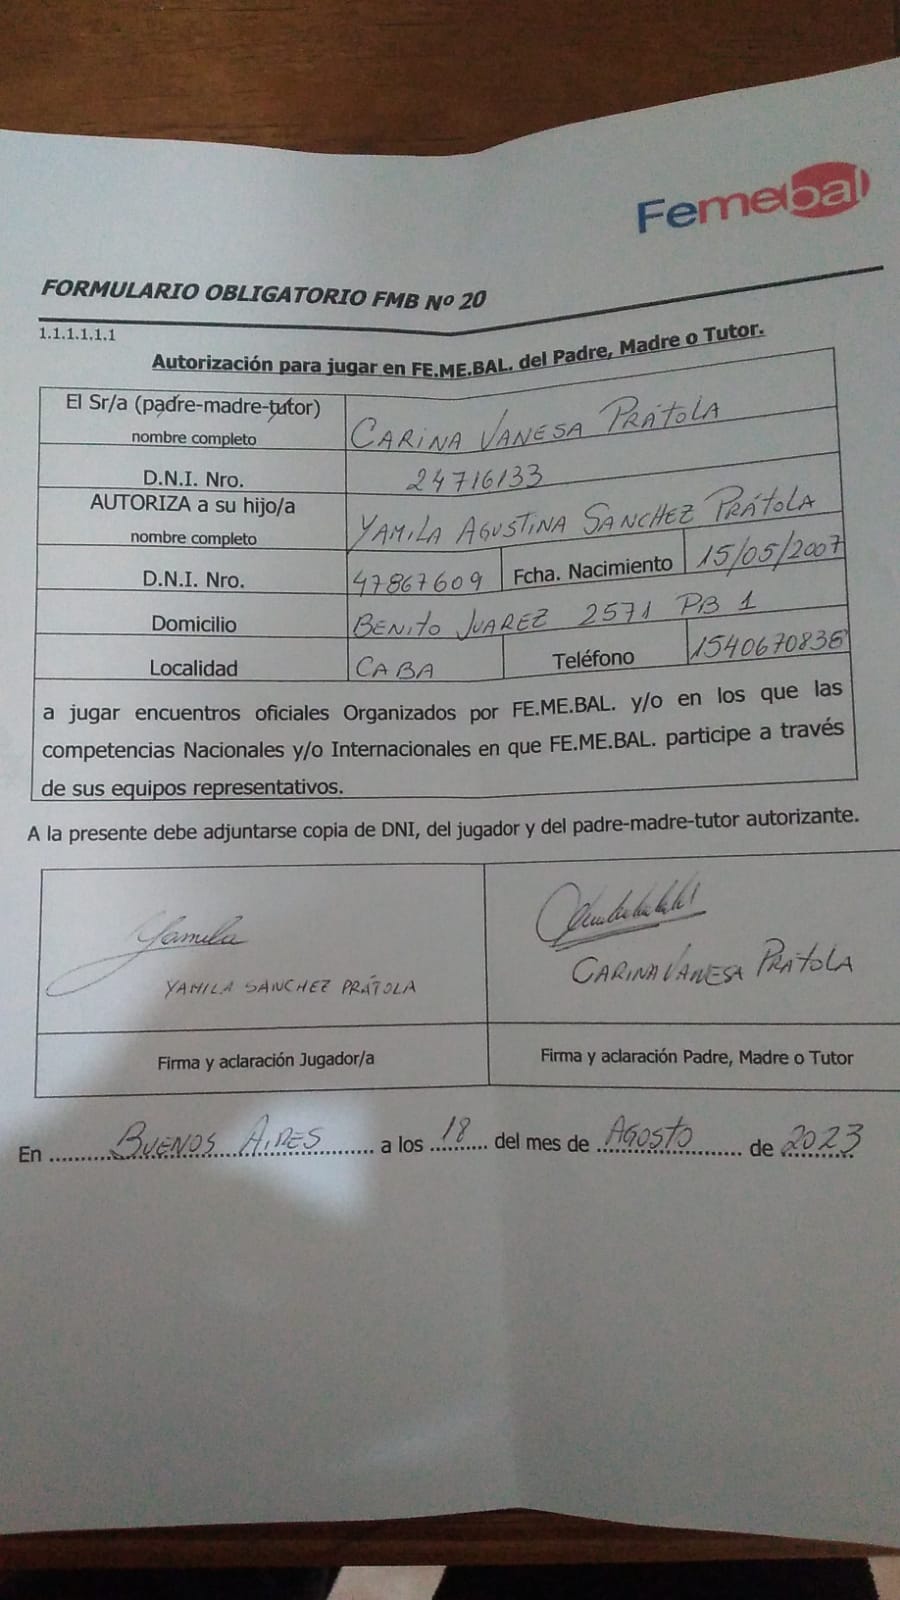 Femebal
FORMULARIO OBLIGATORIO FMB Nº 20
1.1.1.1.1.1
Autorización para jugar en FE.ME.BAL. del Padre, Madre o Tutor.
El Sr/a (padre-madre-tutor)
nombre completo
CARINA VANESA PRÁTOLA
D.N.I. Nro.
24716133
AUTORIZA a su hijo/a
nombre completo
YAMILA AGUSTINA SANCHEZ PRÁTOLA
D.N.I. Nro. 47867609 Fcha. Nacimiento 15/05/2007
Domicilio BENITO JUAREZ 2571 PB 1
Localidad CABA Teléfono 1540670836
a jugar encuentros oficiales Organizados por FE.ME.BAL. y/o en los que las
competencias Nacionales y/o Internacionales en que FE.ME.BAL. participe a través
de sus equipos representativos.
A la presente debe adjuntarse copia de DNI, del jugador y del padre-madre-tutor autorizante.
Yamila
YAMILA SANCHEZ PRÁTOLA
CARINA VANESA PRATOLA
Firma y aclaración Jugador/a
Firma y aclaración Padre, Madre o Tutor
En BUENOS AIRES a los 18 del mes de AGOSTO de 2023